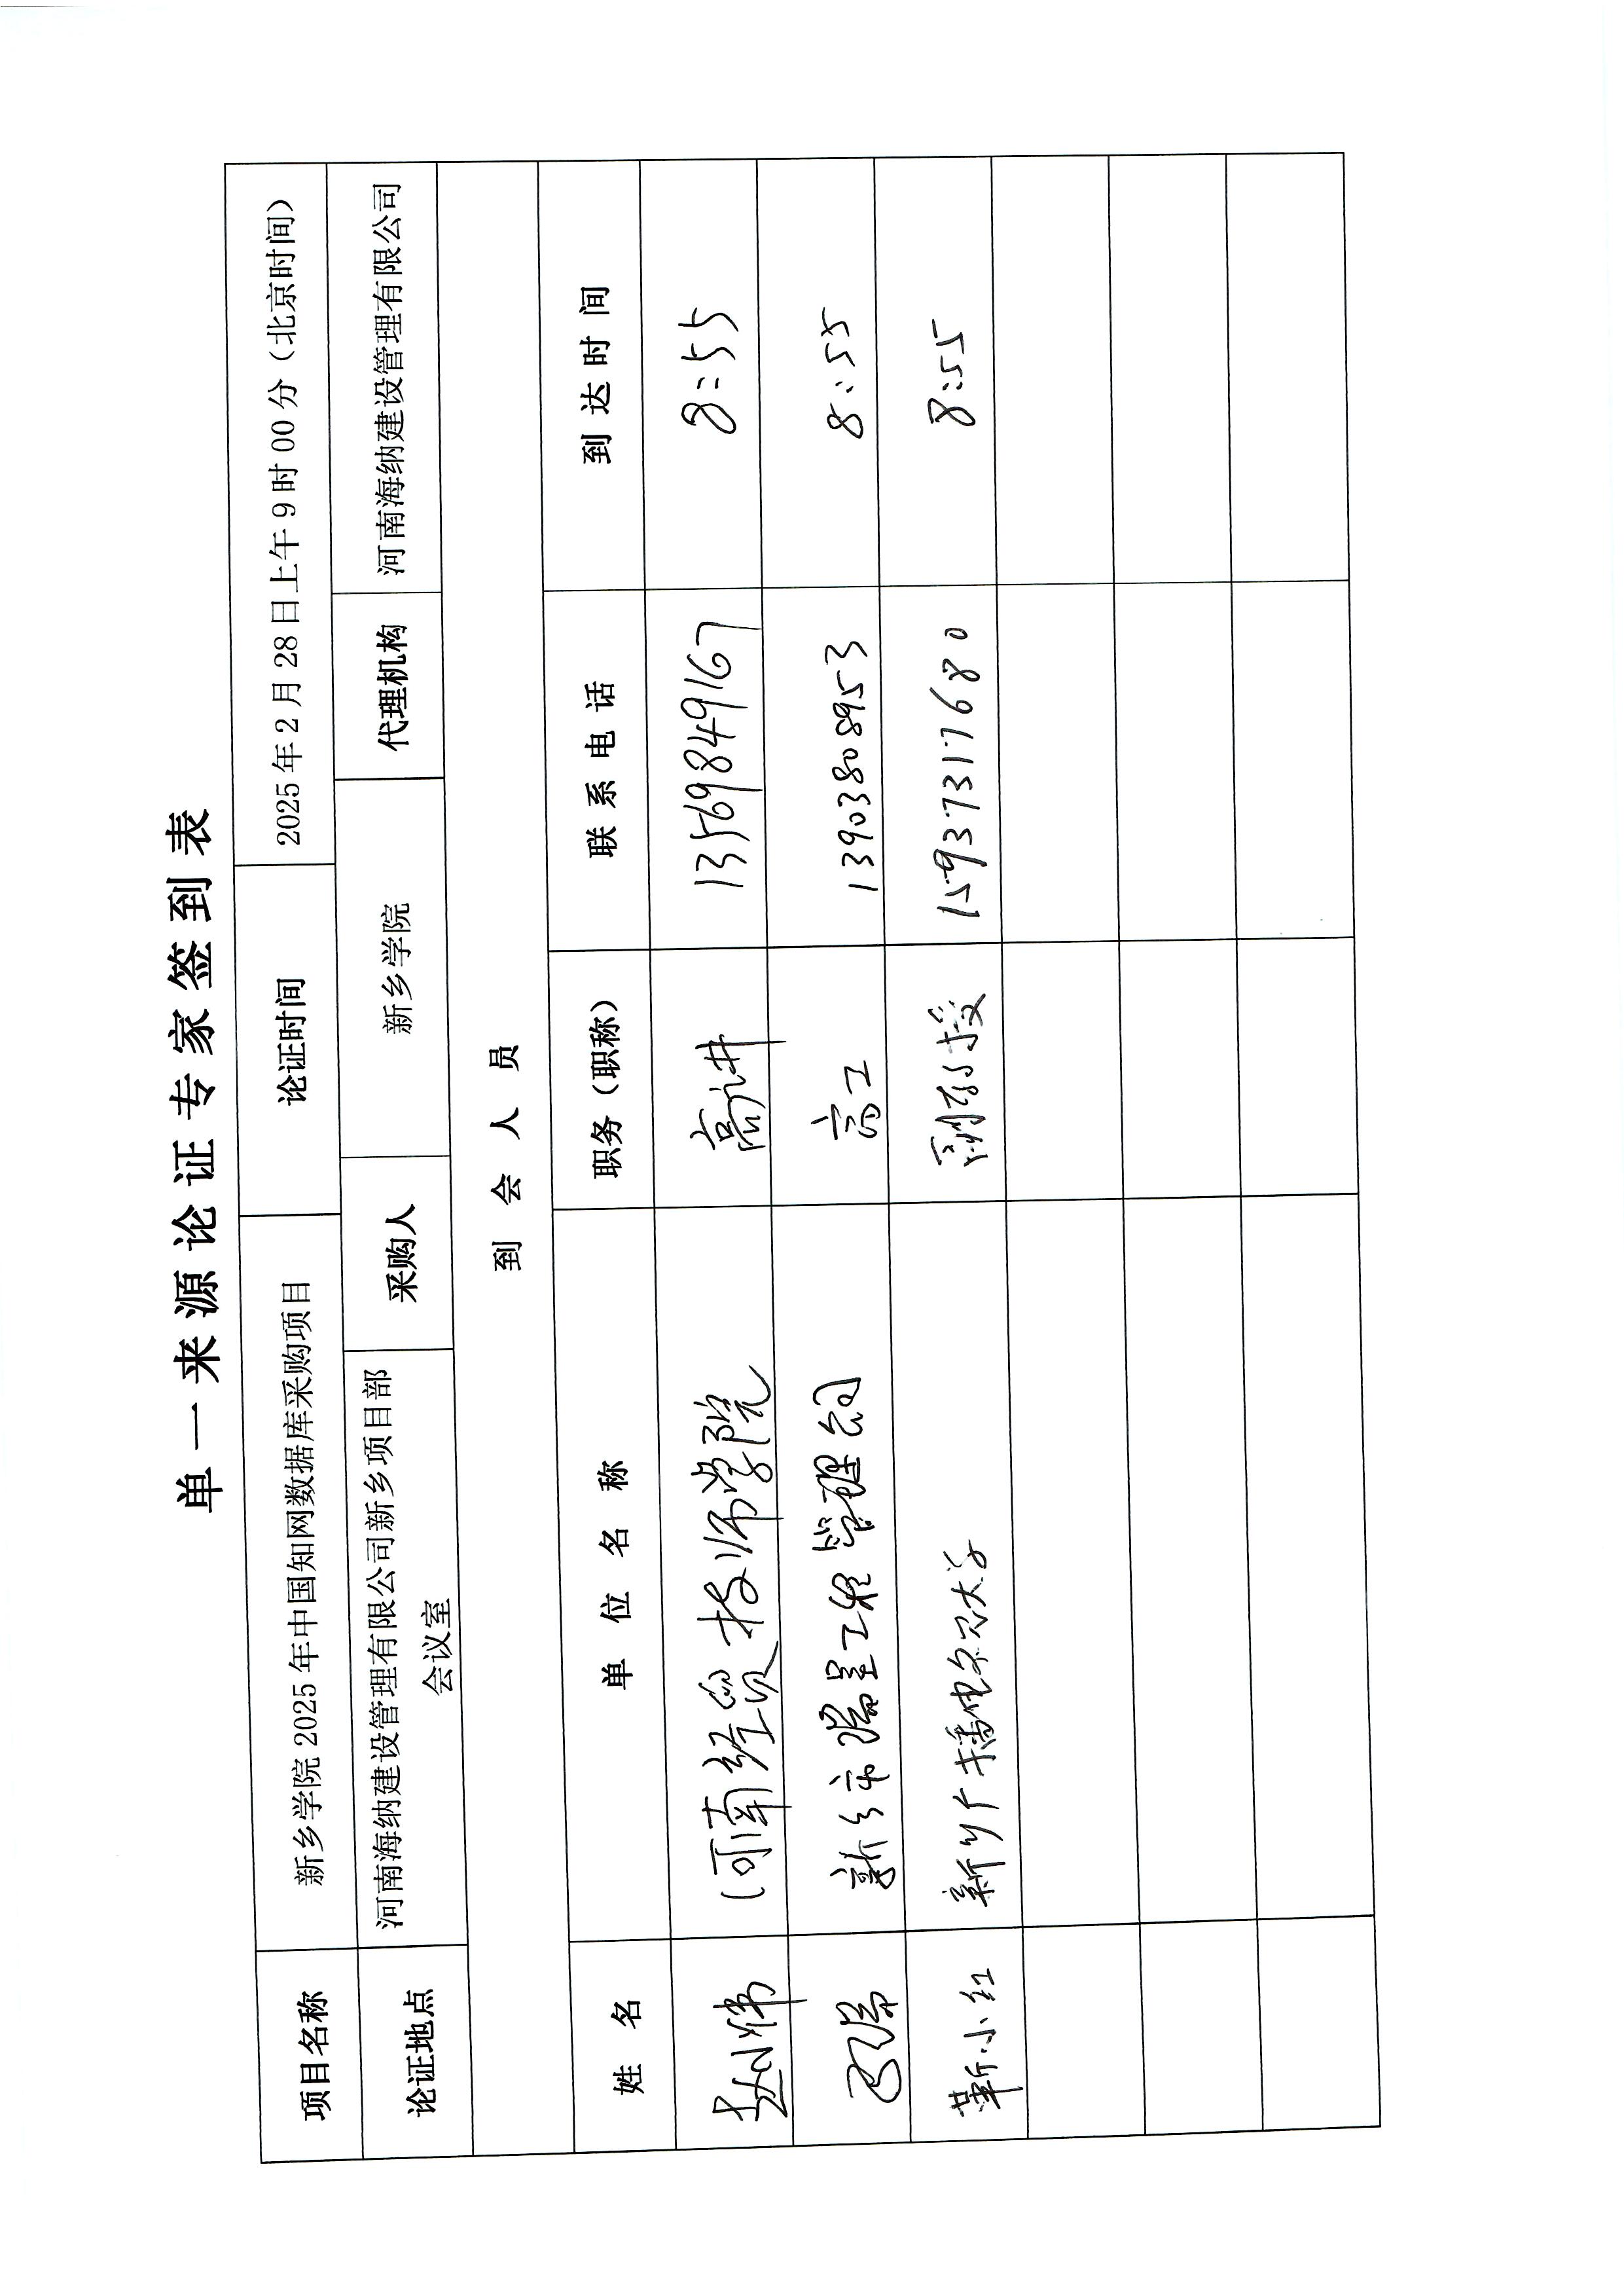 单一来源论证专家签到表
项目名称 新乡学院 2025 年中国知网数据库采购项目 论证时间 2025 年 2 月 28 日上午 9 时 00 分（北京时间）
论证地点 河南海纳建设管理有限公司新乡项目部 采购人 新乡学院 代理机构 河南海纳建设管理有限公司
会议室
到会人员
姓名 单位名称 职务（职称） 联系电话 到达时间
河南经贸技师学院 高讲 13569849167 8:55
新乡市 工程管理公司 高工 13903808953 8:55
靳小红 新乡广播电视大学 副教授 15937317680 8:55